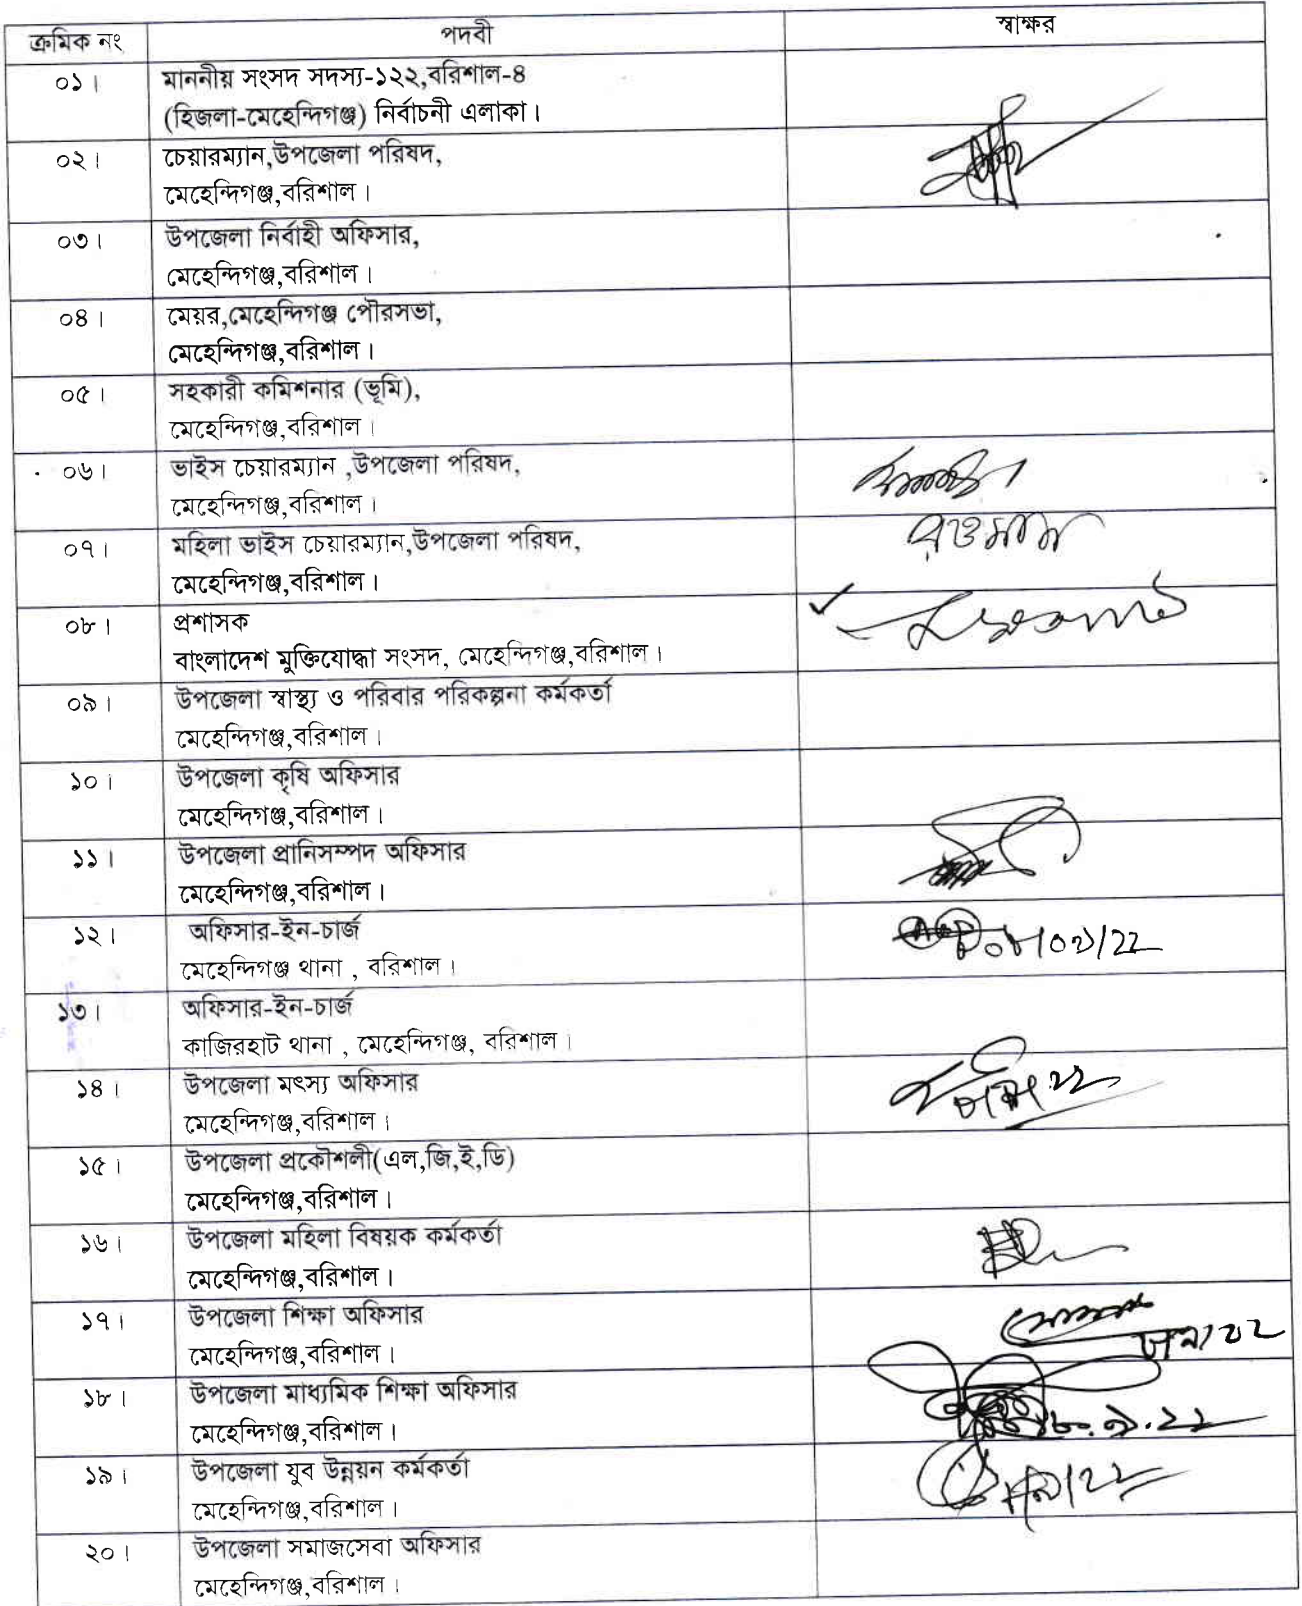 ক্রমিক নং পদবী স্বাক্ষর
০১। মাননীয় সংসদ সদস্য-১২২,বরিশাল-৪
(হিজলা-মেহেন্দিগঞ্জ) নির্বাচনী এলাকা।
০২। চেয়ারম্যান,উপজেলা পরিষদ,
মেহেন্দিগঞ্জ,বরিশাল।
০৩। উপজেলা নির্বাহী অফিসার,
মেহেন্দিগঞ্জ,বরিশাল।
০৪। মেয়র,মেহেন্দিগঞ্জ পৌরসভা,
মেহেন্দিগঞ্জ,বরিশাল।
০৫। সহকারী কমিশনার (ভূমি),
মেহেন্দিগঞ্জ,বরিশাল।
০৬। ভাইস চেয়ারম্যান ,উপজেলা পরিষদ,
মেহেন্দিগঞ্জ,বরিশাল।
০৭। মহিলা ভাইস চেয়ারম্যান,উপজেলা পরিষদ,
মেহেন্দিগঞ্জ,বরিশাল।
০৮। প্রশাসক
বাংলাদেশ মুক্তিযোদ্ধা সংসদ, মেহেন্দিগঞ্জ,বরিশাল।
০৯। উপজেলা স্বাস্থ্য ও পরিবার পরিকল্পনা কর্মকর্তা
মেহেন্দিগঞ্জ,বরিশাল।
১০। উপজেলা কৃষি অফিসার
মেহেন্দিগঞ্জ,বরিশাল।
১১। উপজেলা প্রানিসম্পদ অফিসার
মেহেন্দিগঞ্জ,বরিশাল।
১২। অফিসার-ইন-চার্জ
মেহেন্দিগঞ্জ থানা , বরিশাল।
১৩। অফিসার-ইন-চার্জ
কাজিরহাট থানা , মেহেন্দিগঞ্জ, বরিশাল।
১৪। উপজেলা মৎস্য অফিসার
মেহেন্দিগঞ্জ,বরিশাল।
১৫। উপজেলা প্রকৌশলী(এল,জি,ই,ডি)
মেহেন্দিগঞ্জ,বরিশাল।
১৬। উপজেলা মহিলা বিষয়ক কর্মকর্তা
মেহেন্দিগঞ্জ,বরিশাল।
১৭। উপজেলা শিক্ষা অফিসার
মেহেন্দিগঞ্জ,বরিশাল।
১৮। উপজেলা মাধ্যমিক শিক্ষা অফিসার
মেহেন্দিগঞ্জ,বরিশাল।
১৯। উপজেলা যুব উন্নয়ন কর্মকর্তা
মেহেন্দিগঞ্জ,বরিশাল।
২০। উপজেলা সমাজসেবা অফিসার
মেহেন্দিগঞ্জ,বরিশাল।